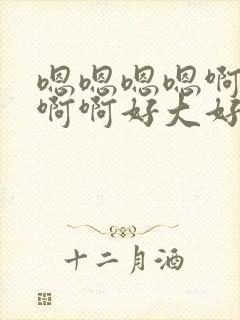 嗯嗯嗯嗯啊
啊啊好大好
十二月酒